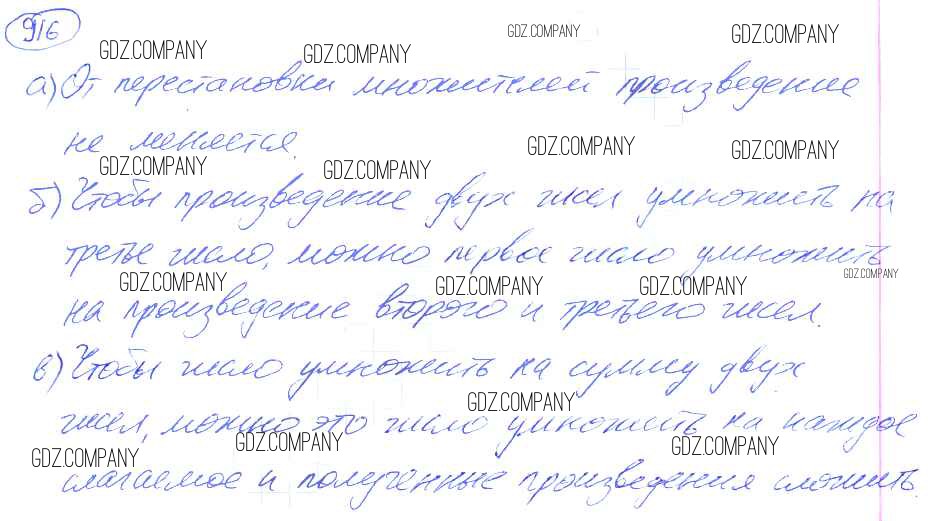 916
GDZ.COMPANY GDZ.COMPANY GDZ.COMPANY GDZ.COMPANY
а) От перестановки множителей произведение
не меняется.
GDZ.COMPANY GDZ.COMPANY GDZ.COMPANY GDZ.COMPANY
б) Чтобы произведение двух чисел умножить на
третье число, можно первое число умножить
GDZ.COMPANY GDZ.COMPANY GDZ.COMPANY GDZ.COMPANY
на произведение второго и третьего чисел.
в) Чтобы число умножить на сумму двух
GDZ.COMPANY
чисел, можно это число умножить на каждое
GDZ.COMPANY GDZ.COMPANY GDZ.COMPANY
слагаемое и полученные произведения сложить.